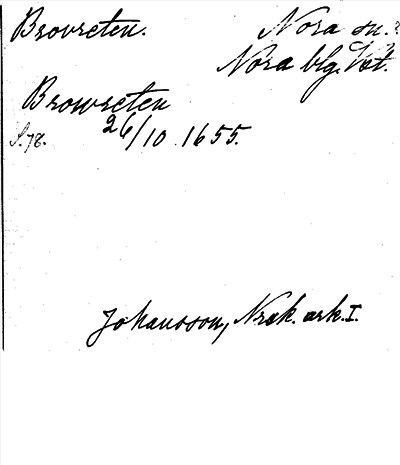 Brovreten. Nora sn.
Nora blg. Vst.
Browreten
S. 78. 26/10 1655.
Johansson, Nrak. ark. I.